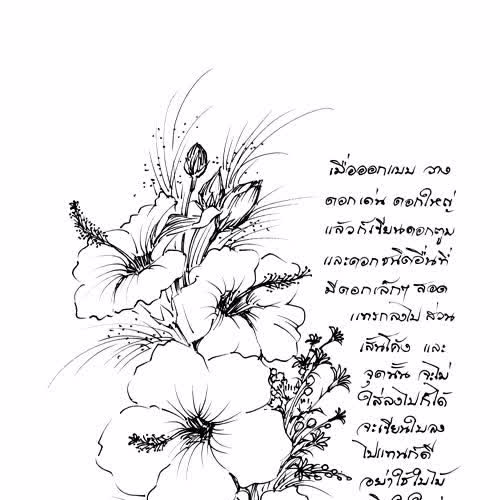 เมื่อออกแบบ วาง
ดอกเด่น ดอกใหญ่
แล้วก็เขียนดอกตูม
และดอกชนิดอื่นที่
มีดอกเล็กๆ สอด
แทรกลงไป ส่วน
เส้นโค้ง และ
จุดนั้น จะไม่
ใส่ลงไปก็ได้
จะเขียนใบลง
ไปแทนก็ดี
อย่าใช้ใบไม้